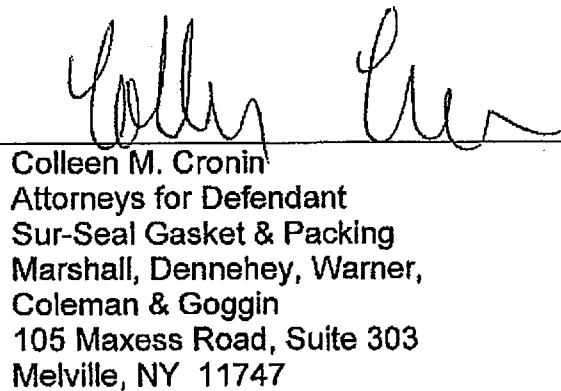 Colleen M. Cronin
Attorneys for Defendant
Sur-Seal Gasket & Packing
Marshall, Dennehey, Warner,
Coleman & Goggin
105 Maxess Road, Suite 303
Melville, NY 11747